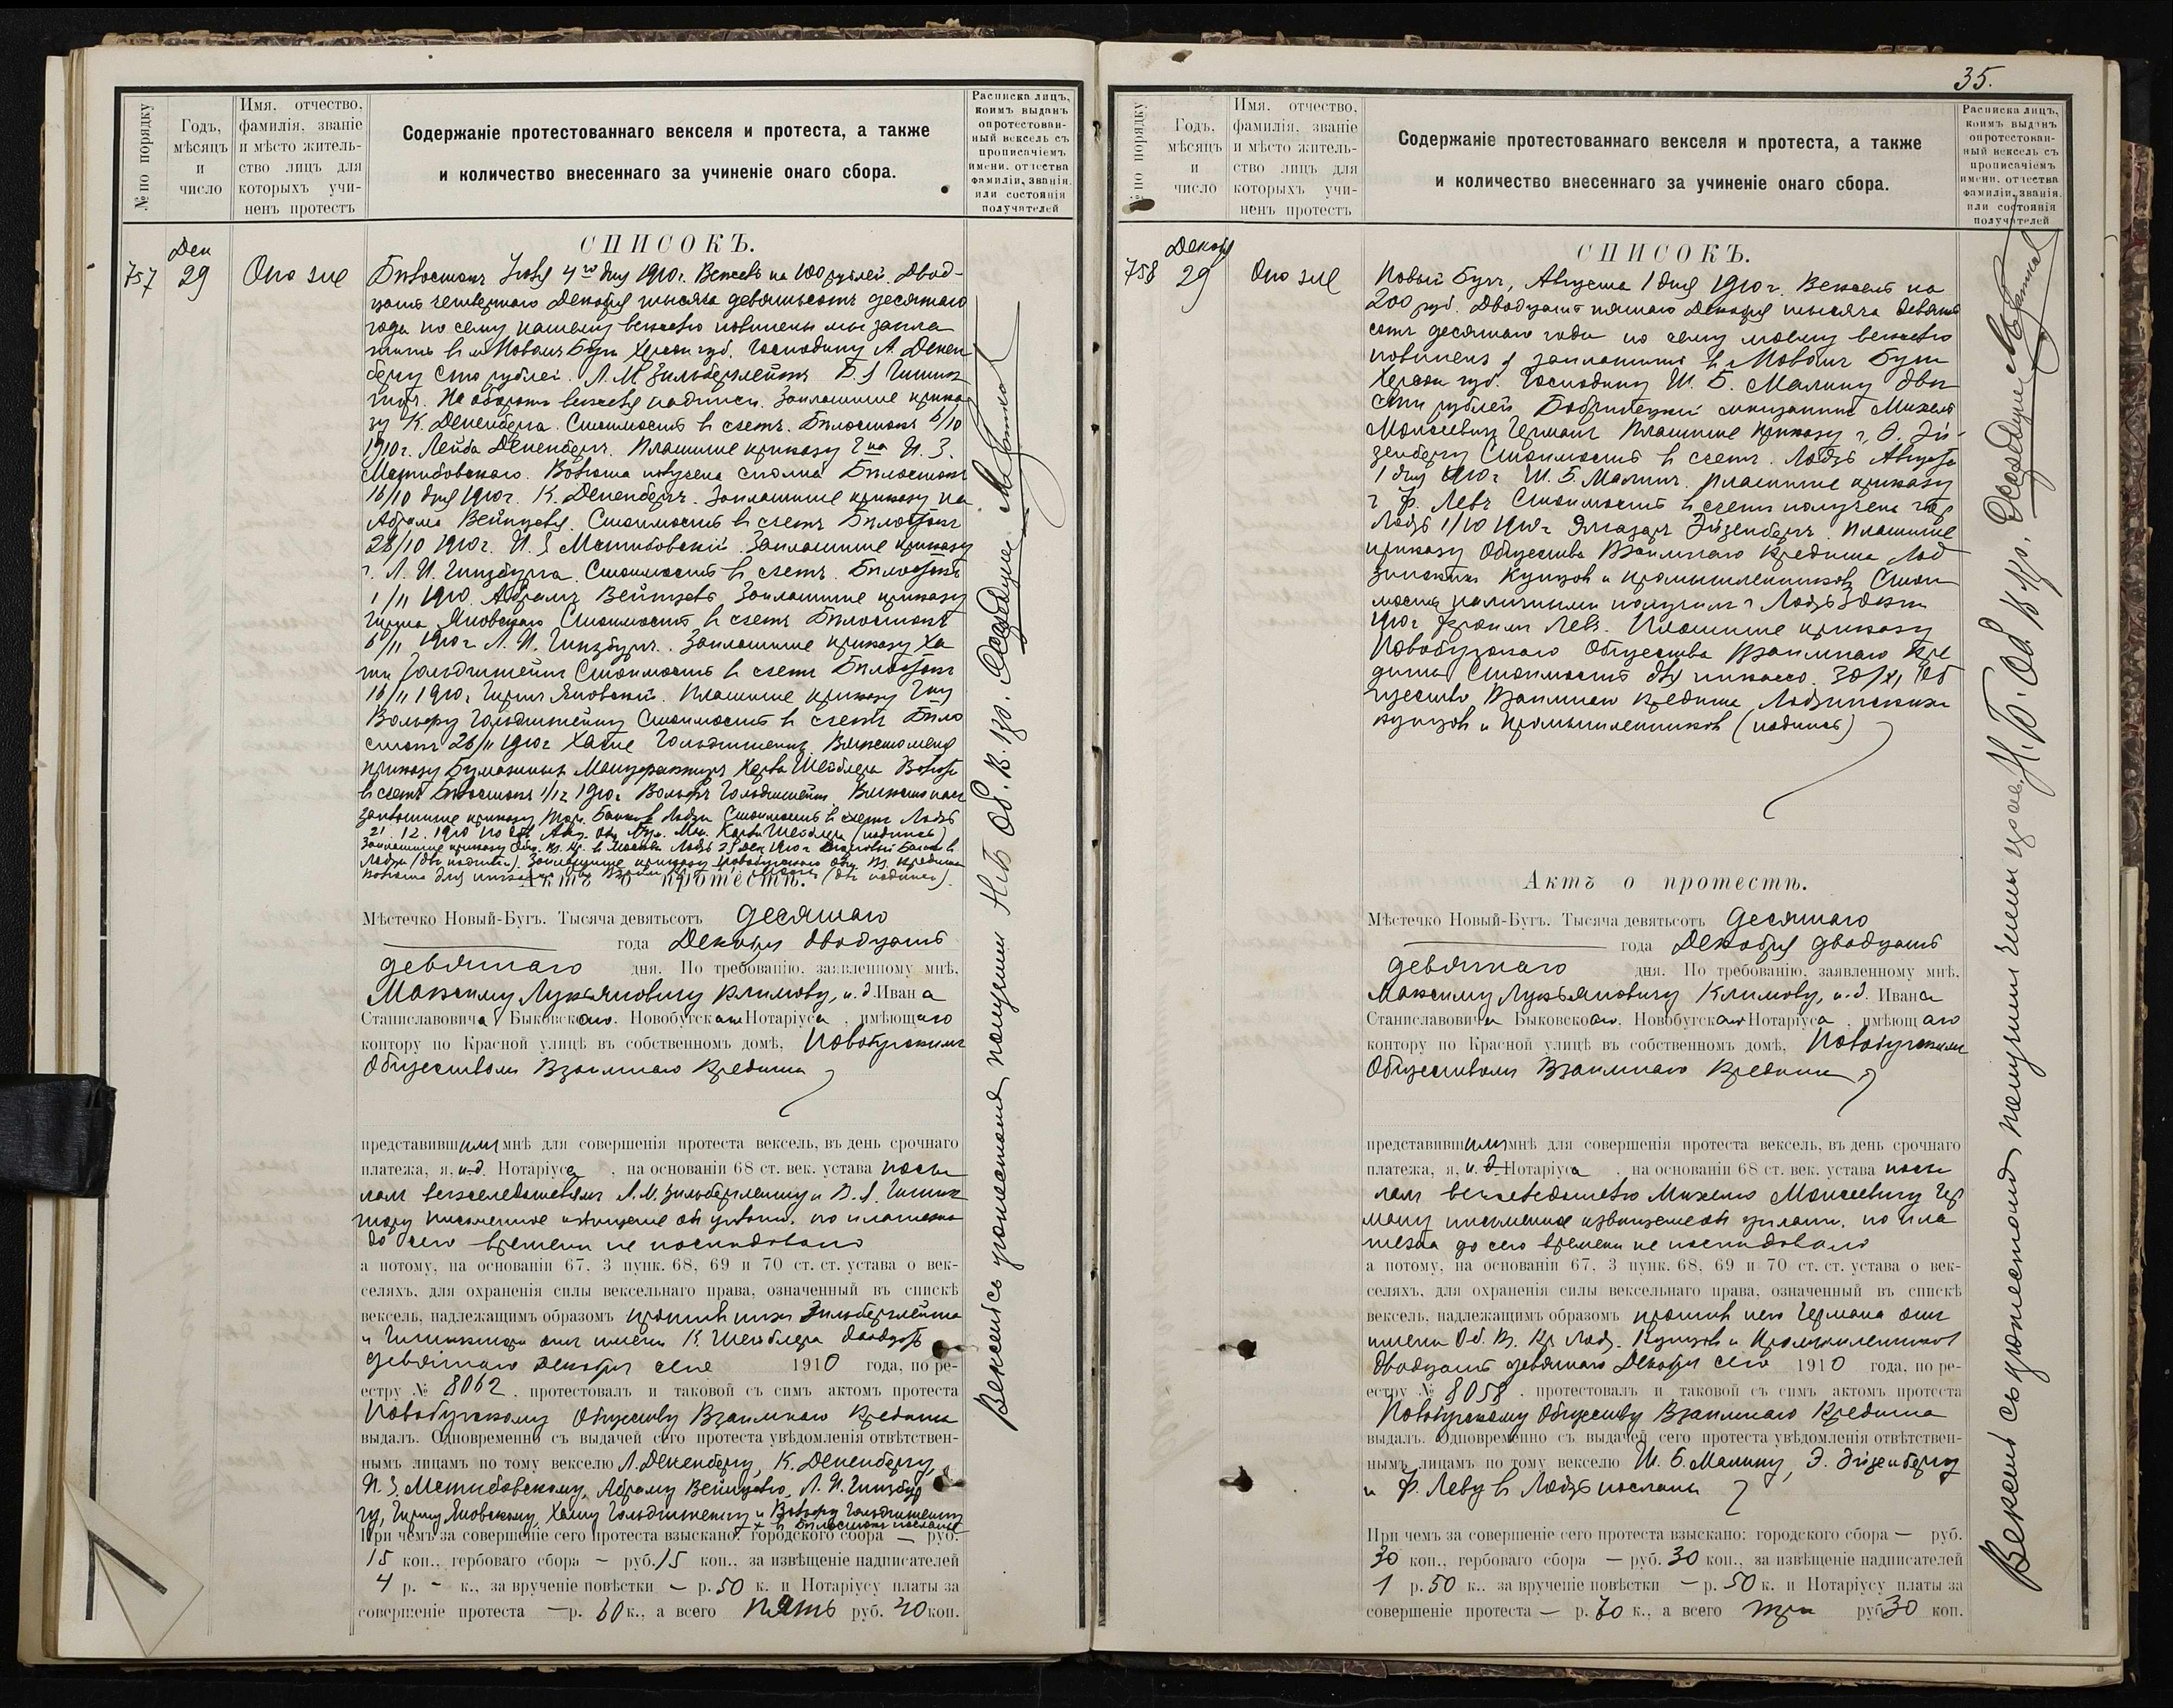 № по порядку
Годъ, мѣсяцъ и число
Имя, отчество, фамилія, званіе и мѣсто жительство лицъ для которыхъ учиненъ протестъ
Содержаніе протестованнаго векселя и протеста, а также
и количество внесеннаго за учиненіе онаго сбора.
Расписка лицъ, коимъ выданъ опротестованный вексель съ прописаніемъ имени, отчества фамиліи, званія, или состоянія получателей
СПИСОКЪ.
757
Дек
29
Оно же
Бѣлостокъ Іюля 4го дня 1910 г. Вексель на 100 рублей. Двад-
цать четвертаго Декабря тысяча девятьсотъ десятаго
года по сему нашему векселю повинны мы запла
тить въ м Новомъ Бугѣ Херсон губ. Господину Л. Денен
бергу Сто рублей. Л. М Зильберглейтъ
На оборотѣ векселя надписи. Заплатите прика
зу К. Дененберга. Стоимость въ счетъ. Бѣлостокъ 6/10
1910 г. Лейба Дененбергъ. Платите приказу
Мстибовскаго. Бѣлостокъ
16/10 дня 1910 г. К. Дененбергъ. Заплатите приказу на
Абрама Вейнцевъ. Стоимость въ счетъ Бѣлостокъ
28/10 1910 г. Мстибовскій. Заплатите приказу
г. Л. И. Гинзбурга. Стоимость въ счетъ. Бѣлостокъ
1/11 1910. Абрамъ Вейнцевъ Заплатите приказу
Гирша Яновскаго Стоимость въ счетъ Бѣлостокъ
6/11 1910 г Л. И. Гинзбургъ. Заплатите приказу Ха
ти Гольдштейнъ Стоимость въ счетъ Бѣлостокъ
16/11 1910 г Гиршъ Яновскій. Платите приказу
Вольфу Гольдштейну Стоимость въ счетъ Бѣло
стокъ 26/11 1910 г Гольдштейнъ. Вмѣсто меня
приказу Бумажныхъ Мануфактуръ Карла Шейблера
въ счетъ Бѣлостокъ 1/12 1910 г Вольфъ Гольдштейнъ.
заплатите приказу Торг. Банка въ Лодзи Стоимость въ счетъ Лодзь
21.12.1910 Карла Шейблера (подпись)
Актъ о протестѣ.
Мѣстечко Новый-Бугъ. Тысяча девятьсотъ десятаго
года Декабря двадцать
девятаго дня. По требованію, заявленному мнѣ,
Максиму Лукьяновичу Климову, и. д. Ивана
Станиславовича Быковскаго. Новобугскаго Нотаріуса, имѣющаго
контору по Красной улицѣ въ собственномъ домѣ, Новобугскимъ
Обществомъ Взаимнаго Кредита
представившимъ мнѣ для совершенія протеста вексель, въ день срочнаго
платежа, я, и.д. Нотаріуса, на основаніи 68 ст. век. устава посы
лалъ векселедателямъ Л. М. Зильберглейту и
письменное извѣщеніе объ уплатѣ, но платежа
до сего времени не послѣдовало
а потому, на основаніи 67, 3 пунк. 68, 69 и 70 ст. ст. устава о век-
селяхъ, для охраненія силы вексельнаго права, означенный въ спискѣ
вексель, надлежащимъ образомъ противъ нихъ Зильберглейта
и отъ имени К. Шейблера двадцать
девятаго декабря сего 1910 года, по ре-
естру № 8062, протестовалъ и таковой съ симъ актомъ протеста
Новобугскому Обществу Взаимнаго Кредита
выдалъ. Одновременно съ выдачей сего протеста увѣдомленія отвѣтствен-
нымъ лицамъ по тому векселю Л. Дененбергу, К. Дененбергу,
Мстибовскому, Абраму Вейнцеву, Л. И. Гинзбур
гу, Гиршу Яновскому, Гольдштейну и Вольфу Гольдштейну
въ Бѣлостокъ посланы
При чемъ за совершеніе сего протеста взыскано: городского сбора — руб.
15 коп., гербоваго сбора — руб. 15 коп., за извѣщеніе надписателей
4 р. - к., за врученіе повѣстки — р. 50 к. и Нотаріусу платы за
совершеніе протеста — р. 60 к., а всего пять руб. 40 коп.
Вексель съ протестомъ получилъ Н.Б. Об. В. Кр.
35.
№ по порядку
Годъ, мѣсяцъ и число
Имя, отчество, фамилія, званіе и мѣсто жительство лицъ для которыхъ учиненъ протестъ
Содержаніе протестованнаго векселя и протеста, а также
и количество внесеннаго за учиненіе онаго сбора.
Расписка лицъ, коимъ выданъ опротестованный вексель съ прописаніемъ имени, отчества фамиліи, званія, или состоянія получателей
СПИСОКЪ.
758
Декабр
29
Оно же
Новый Бугъ, Августа 1 дня 1910 г. Вексель на
200 руб. Двадцать пятаго Декабря тысяча девять
сотъ десятаго года по сему моему векселю
повиненъ я заплатить въ м Новомъ Бугѣ
Херсон губ. Господину Ш. Б. Малину двѣ
сти рублей Бобринецкій мѣщанинъ Михель
Моисеевичъ Германъ Платите приказу г. Э. Эй-
зенбергу Стоимость въ счетъ. Лодзь Августа
1 дня 1910 г Ш. Б. Малинъ. Платите приказу
г Ф. Левъ Стоимость въ счетъ получена
Лодзь 1/10 1910 г Элазаръ Эйзенбергъ. Платите
приказу Общества Взаимнаго Кредита Лод
зинскихъ Купцовъ и промышленниковъ Стои
мость наличными получилъ Лодзь
1910 г Левъ. Платите приказу
Новобугскаго Общества Взаимнаго Кре
дита Стоимость для инкассо. 30/XI Об
щество Взаимнаго Кредита Лодзинскихъ
купцовъ и Промышленниковъ (подпись)
Актъ о протестѣ.
Мѣстечко Новый-Бугъ. Тысяча девятьсотъ Десятаго
года Декабря двадцать
девятаго дня. По требованію, заявленному мнѣ,
Максиму Лукьяновичу Климову, и.д. Ивана
Станиславовича Быковскаго. Новобугскаго Нотаріуса, имѣющаго
контору по Красной улицѣ въ собственномъ домѣ, Новобугскимъ
Обществомъ Взаимнаго Кредита
представившимъ мнѣ для совершенія протеста вексель, въ день срочнаго
платежа, я, и. д. Нотаріуса, на основаніи 68 ст. век. устава посы
лалъ векселедателю Михелю Моисеевичу Гер
ману письменное извѣщеніе объ уплатѣ, но пла
тежа до сего времени не послѣдовало
а потому, на основаніи 67, 3 пунк. 68, 69 и 70 ст. ст. устава о век-
селяхъ, для охраненія силы вексельнаго права, означенный въ спискѣ
вексель, надлежащимъ образомъ противъ него Германа отъ
имени Об. Вз. Кр Лодз. Купцовъ и Промышленниковъ
двадцать девятаго Декабря сего 1910 года, по ре-
естру № 8058. протестовалъ и таковой съ симъ актомъ протеста
Новобугскому Обществу Взаимнаго Кредита
выдалъ. Одновременно съ выдачей сего протеста увѣдомленія отвѣтствен-
нымъ лицамъ по тому векселю Ш. Б. Малину, Э. Эйзенбергу
и Ф. Леву въ Лодзь посланы
При чемъ за совершеніе сего протеста взыскано: городского сбора — руб.
30 коп., гербоваго сбора — руб. 30 коп., за извѣщеніе надписателей
1 р. 50 к. за врученіе повѣстки — р. 50 к. и Нотаріусу платы за
совершеніе протеста — р. 70 к., а всего три руб 30 коп.
Вексель съ протестомъ получилъ Н.Б. Об. В. Кр.